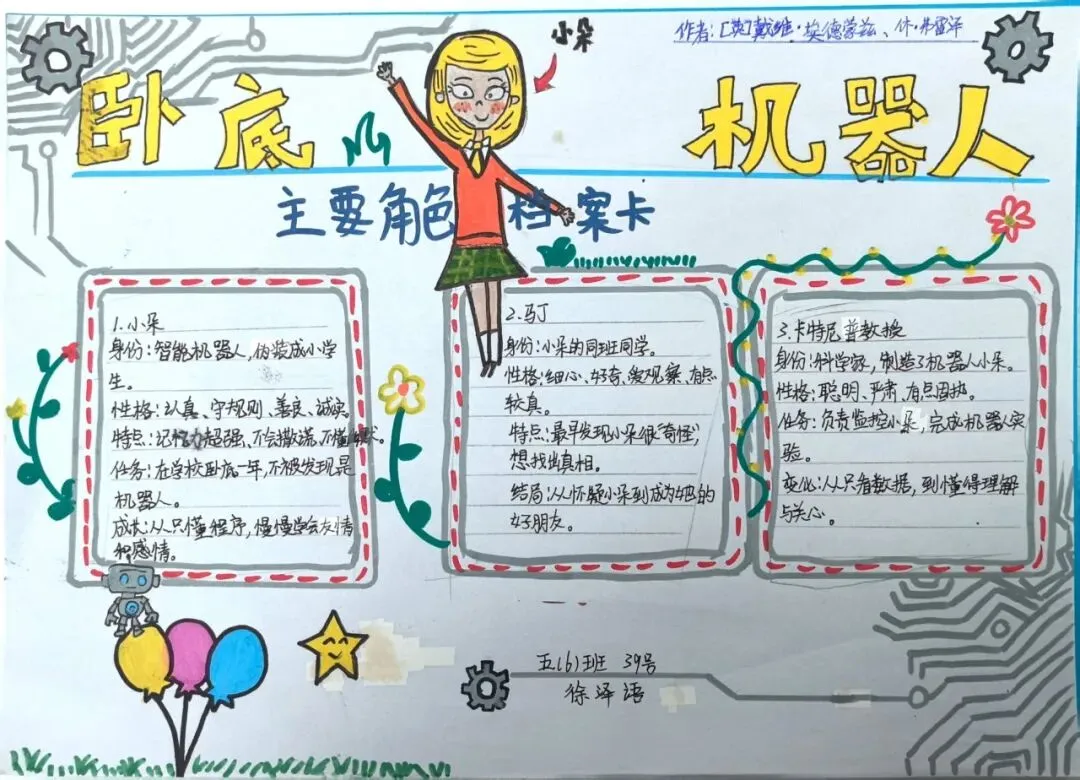 小朵
作者：[英]戴维·埃德蒙兹、休·弗雷泽
卧底 机器人
主要角色 档案卡
1.小朵
身份：智能机器人，伪装成小学
生。
性格：认真、守规则、善良、诚实。
特点：记忆力超强、不会撒谎、不懂幽默。
任务：在学校卧底一年，不被发现是
机器人。
成长：从只懂程序，慢慢学会友情
和感情。
2.马丁
身份：小朵的同班同学。
性格：细心、好奇、爱观察、有点
较真。
特点：最早发现小朵很“奇怪”，
想找出真相。
结局：从怀疑小朵到成为她的
好朋友。
3.卡特尼普教授
身份：科学家，制造了机器人小朵。
性格：聪明、严肃、有点固执。
任务：负责监控小朵，完成机器实
验。
变化：从只看数据，到懂得理解
与关心。
五(6)班 39号
徐泽语